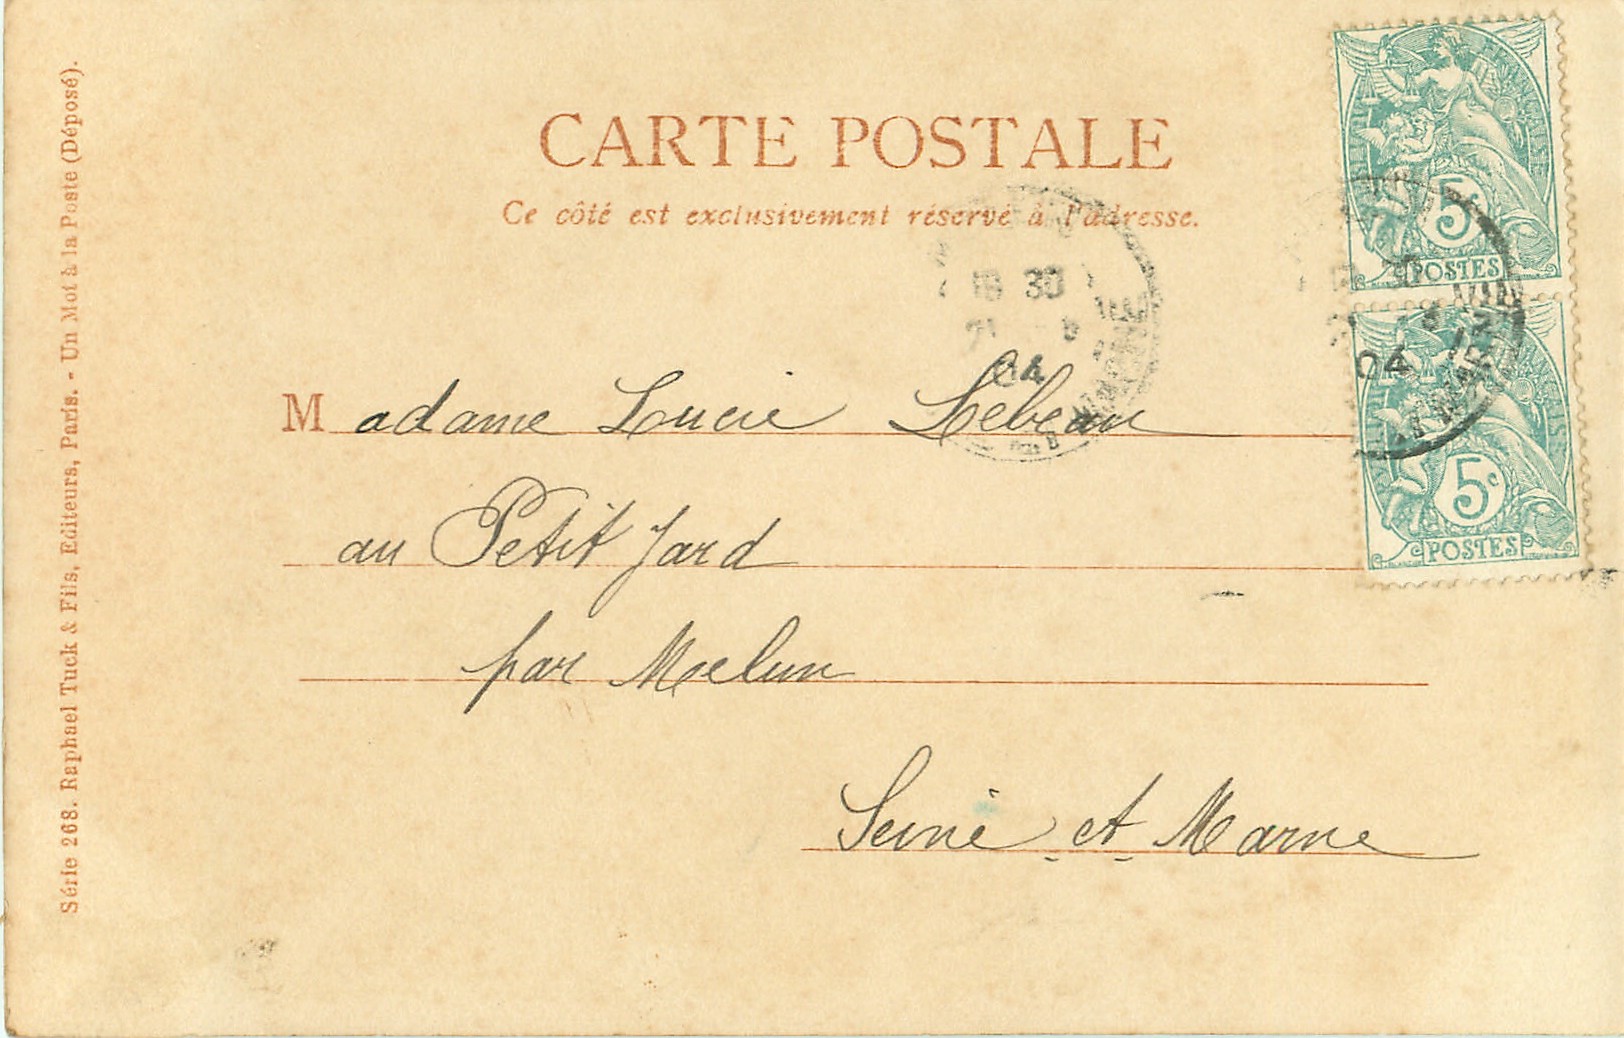 CARTE POSTALE
Ce côté est exclusivement réservé à l'adresse.
Madame Lucie Lebeau
au Petit Jard
par Melun
Seine et Marne
Série 268. Raphael Tuck & Fils, Editeurs, Paris. - Un Mot à la Poste (Déposé).
5
POSTES
5c
POSTES
18 30
04
04